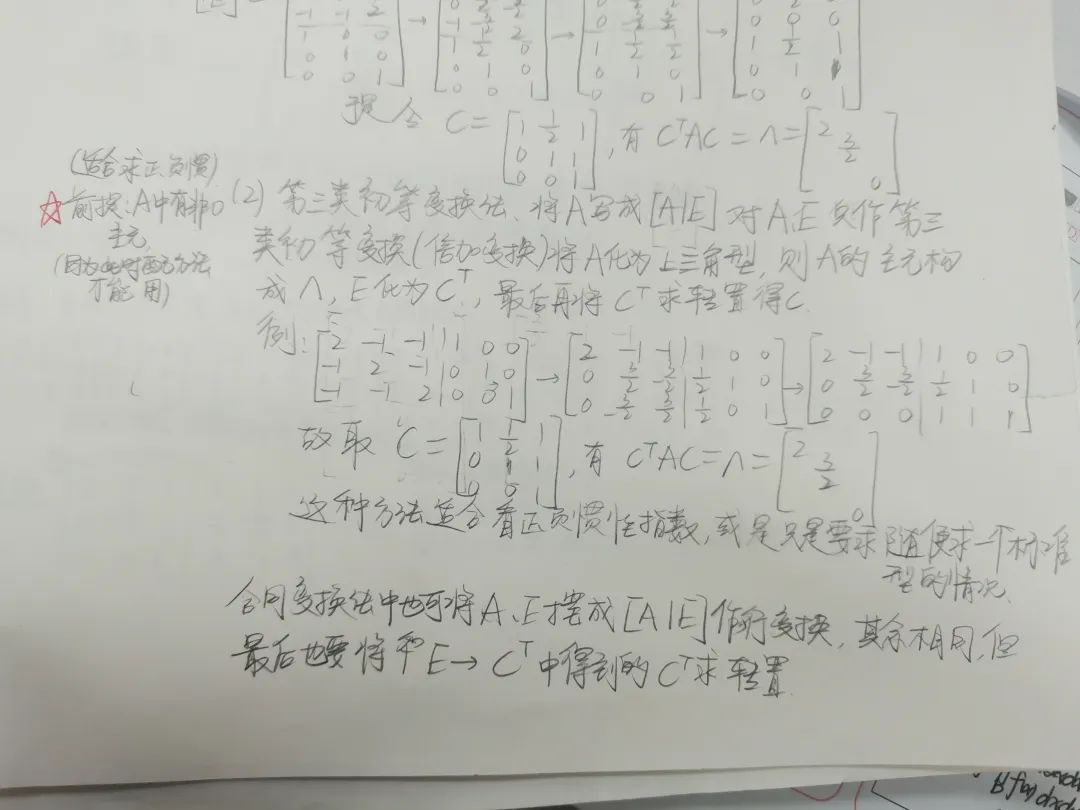 -1 -1 2
1 0 0
0 1 0
0 0 1
→ → →
现令 C = [1 1/2 1; 0 1 1; 0 0 1], 有 CᵀAC = Λ = [2 3/2 0]
(适合求正.负惯)
☆前提:A中有非0主元,
(因为此时配方法才能用)
(2) 第三类初等变换法、将A写成[A|E]对A.E只作第三
类初等变换(倍加变换)将A化为上三角型, 则A的主元构
成Λ, E化为Cᵀ, 最后再将Cᵀ求转置得C.
例: [2 -1 -1 | 1 0 0; -1 2 -1 | 0 1 0; -1 -1 2 | 0 0 1] → [2 -1 -1 | 1 0 0; 0 3/2 -3/2 | 1/2 1 0; 0 -3/2 3/2 | 1/2 0 1] → [2 -1 -1 | 1 0 0; 0 3/2 -3/2 | 1/2 1 0; 0 0 0 | 1 1 1]
故取 C = [1 1/2 1; 0 1 1; 0 0 1], 有 CᵀAC = Λ = [2 3/2 0]
这种方法适合看正负惯性指数, 或是只是要求随便求一个标准
型的情况.
合同变换法中也可将A、E摆成[A|E]作行变换, 其余相同, 但
最后也要将和E→Cᵀ中得到的Cᵀ求转置.